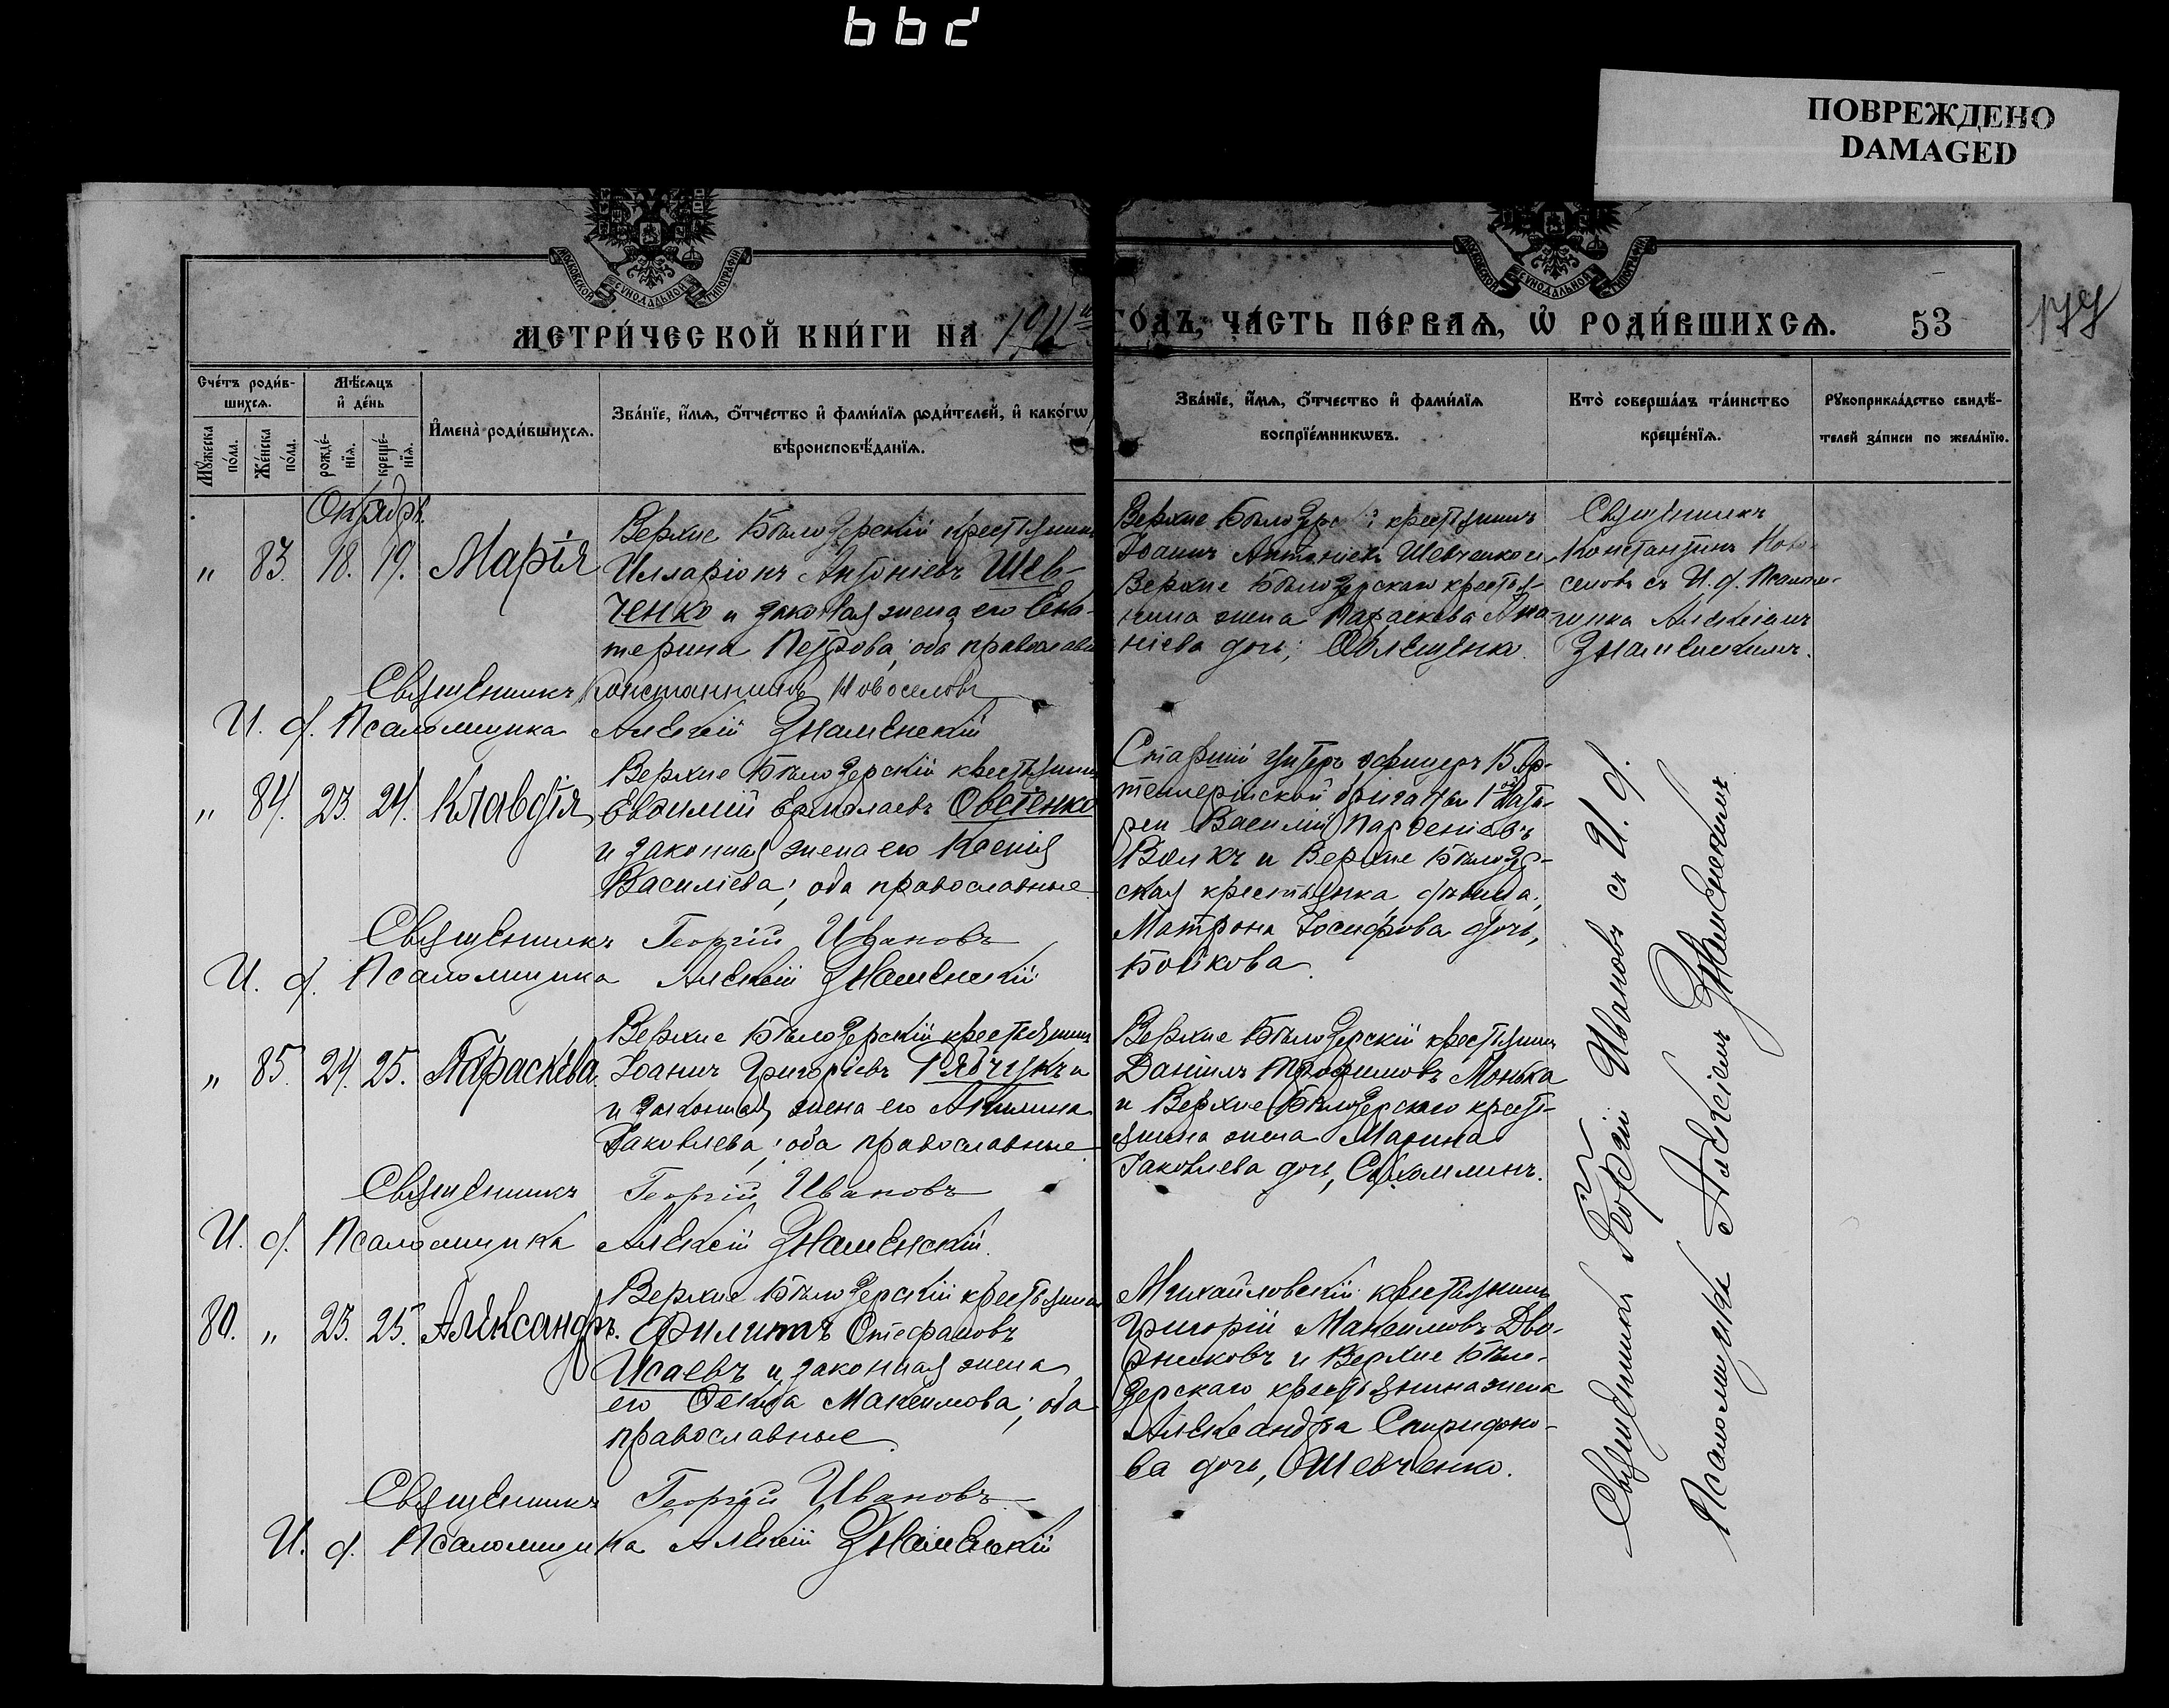 662
ПОВРЕЖДЕНО
DAMAGED
МОСКОВСКОЙ СУНОДАЛЬНОЙ ТИПОГРАФІИ
МОСКОВСКОЙ СУНОДАЛЬНОЙ ТИПОГРАФІИ
МЕТРИ́ЧЕСКОЙ КНИ́ГИ НА 1911 ГО́ДЪ, ЧА́СТЬ ПЕ́РВАѦ, Ѡ҆ РОДИ́ВШИХСѦ. 53
Сче́тъ роди́в-
шихсѧ.
Мꙋ́жеска
по́ла.
Же́нска
по́ла.
Мѣ́сѧцъ
и҆ де́нь
рожде́-
нїѧ.
креще́-
нїѧ.
И҆мена̀ роди́вшихсѧ.
Зва́нїе, и҆́мѧ, ѻ҆́тчество и҆ фами́лїѧ роди́телей, и҆ како́гѡ
вѣроисповѣ́данїѧ.
Зва́нїе, и҆́мѧ, ѻ҆́тчество и҆ фами́лїѧ
воспрїе́мникѡвъ.
Кто̀ соверша́лъ та́инство
креще́нїѧ.
Рꙋкоприкла́дство свидѣ́-
телей за́писи по жела́нїю.
Октябрь.
" 83. 18. 19. Марія
Верхне Бѣлозерскій крестьянинъ
Илларіонъ Антоніевъ Шев-
ченко и законная жена его Ека-
терина Петрова; оба православн
Верхне Бѣлозерс й крестьянинъ
Іоаннъ Антоніевъ Шевченко и
Верхне Бѣлозерскаго крестья-
нина жена Параскева Ана
ніева дочь,
Священникъ
Константинъ Ново-
селовъ съ И. д. Псалом-
щика Алексіемъ
Знаменскимъ.
Священникъ Константинъ Новоселовъ
И. д. Псаломщика Алексій Знаменскій
" 84. 23. 24. Клавдія
Верхне Бѣлозерскій крестьянинъ
Евѳимій Ермолаевъ Овсѣенко
и законная жена его Ксенія
Василіева; оба православные
Старшій унтеръ офицеръ 15 Ар-
тиллерійской бригады 1й Бата-
реи Василій Парѳеніевъ
Волкъ и Верхне Бѣлозер-
ская крестьянка, дѣвица,
Матрона Іосифова дочь,
Бойкова.
Священникъ Георгій Ивановъ
И. д. Псаломщика Алексій Знаменскій
" 85. 24. 25. Параскева.
Верхне Бѣлозерскій крестьянинъ
Іоаннъ Григоріевъ Рябчукъ
и законная жена его Акилина
Іаковлева; оба православные
Верхне Бѣлозерскій крестьянинъ
Даніилъ Трофимовъ Монька
и Верхне Бѣлозерскаго кресть-
янина жена Марина
Іаковлева дочь, Сухомлинъ.
Священникъ Георгій Ивановъ
И. д. Псаломщика Алексій Знаменскій.
80. " 23. 25. Александръ.
Верхне Бѣлозерскій крестьянинъ
Филиппъ Стефановъ
Исаевъ и законная жена
его Ѳекла Максимова; оба
православные.
Михайловскій крестьянинъ
Григорій Максимовъ Дво-
рниковъ и Верхне Бѣло-
зерскаго крестьянина жена
Александра Спиридоно-
ва дочь, Шевченко.
Священникъ Георгій Ивановъ съ И. д.
Псаломщика Алексіемъ Знаменскимъ
Священникъ Георгій Ивановъ
И. д. Псаломщика Алексій Знаменскій